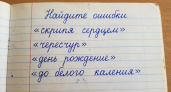 Найдите ошибки
«скрипя сердцем»
«чересчур»
«день рождение»
«до белого каления»